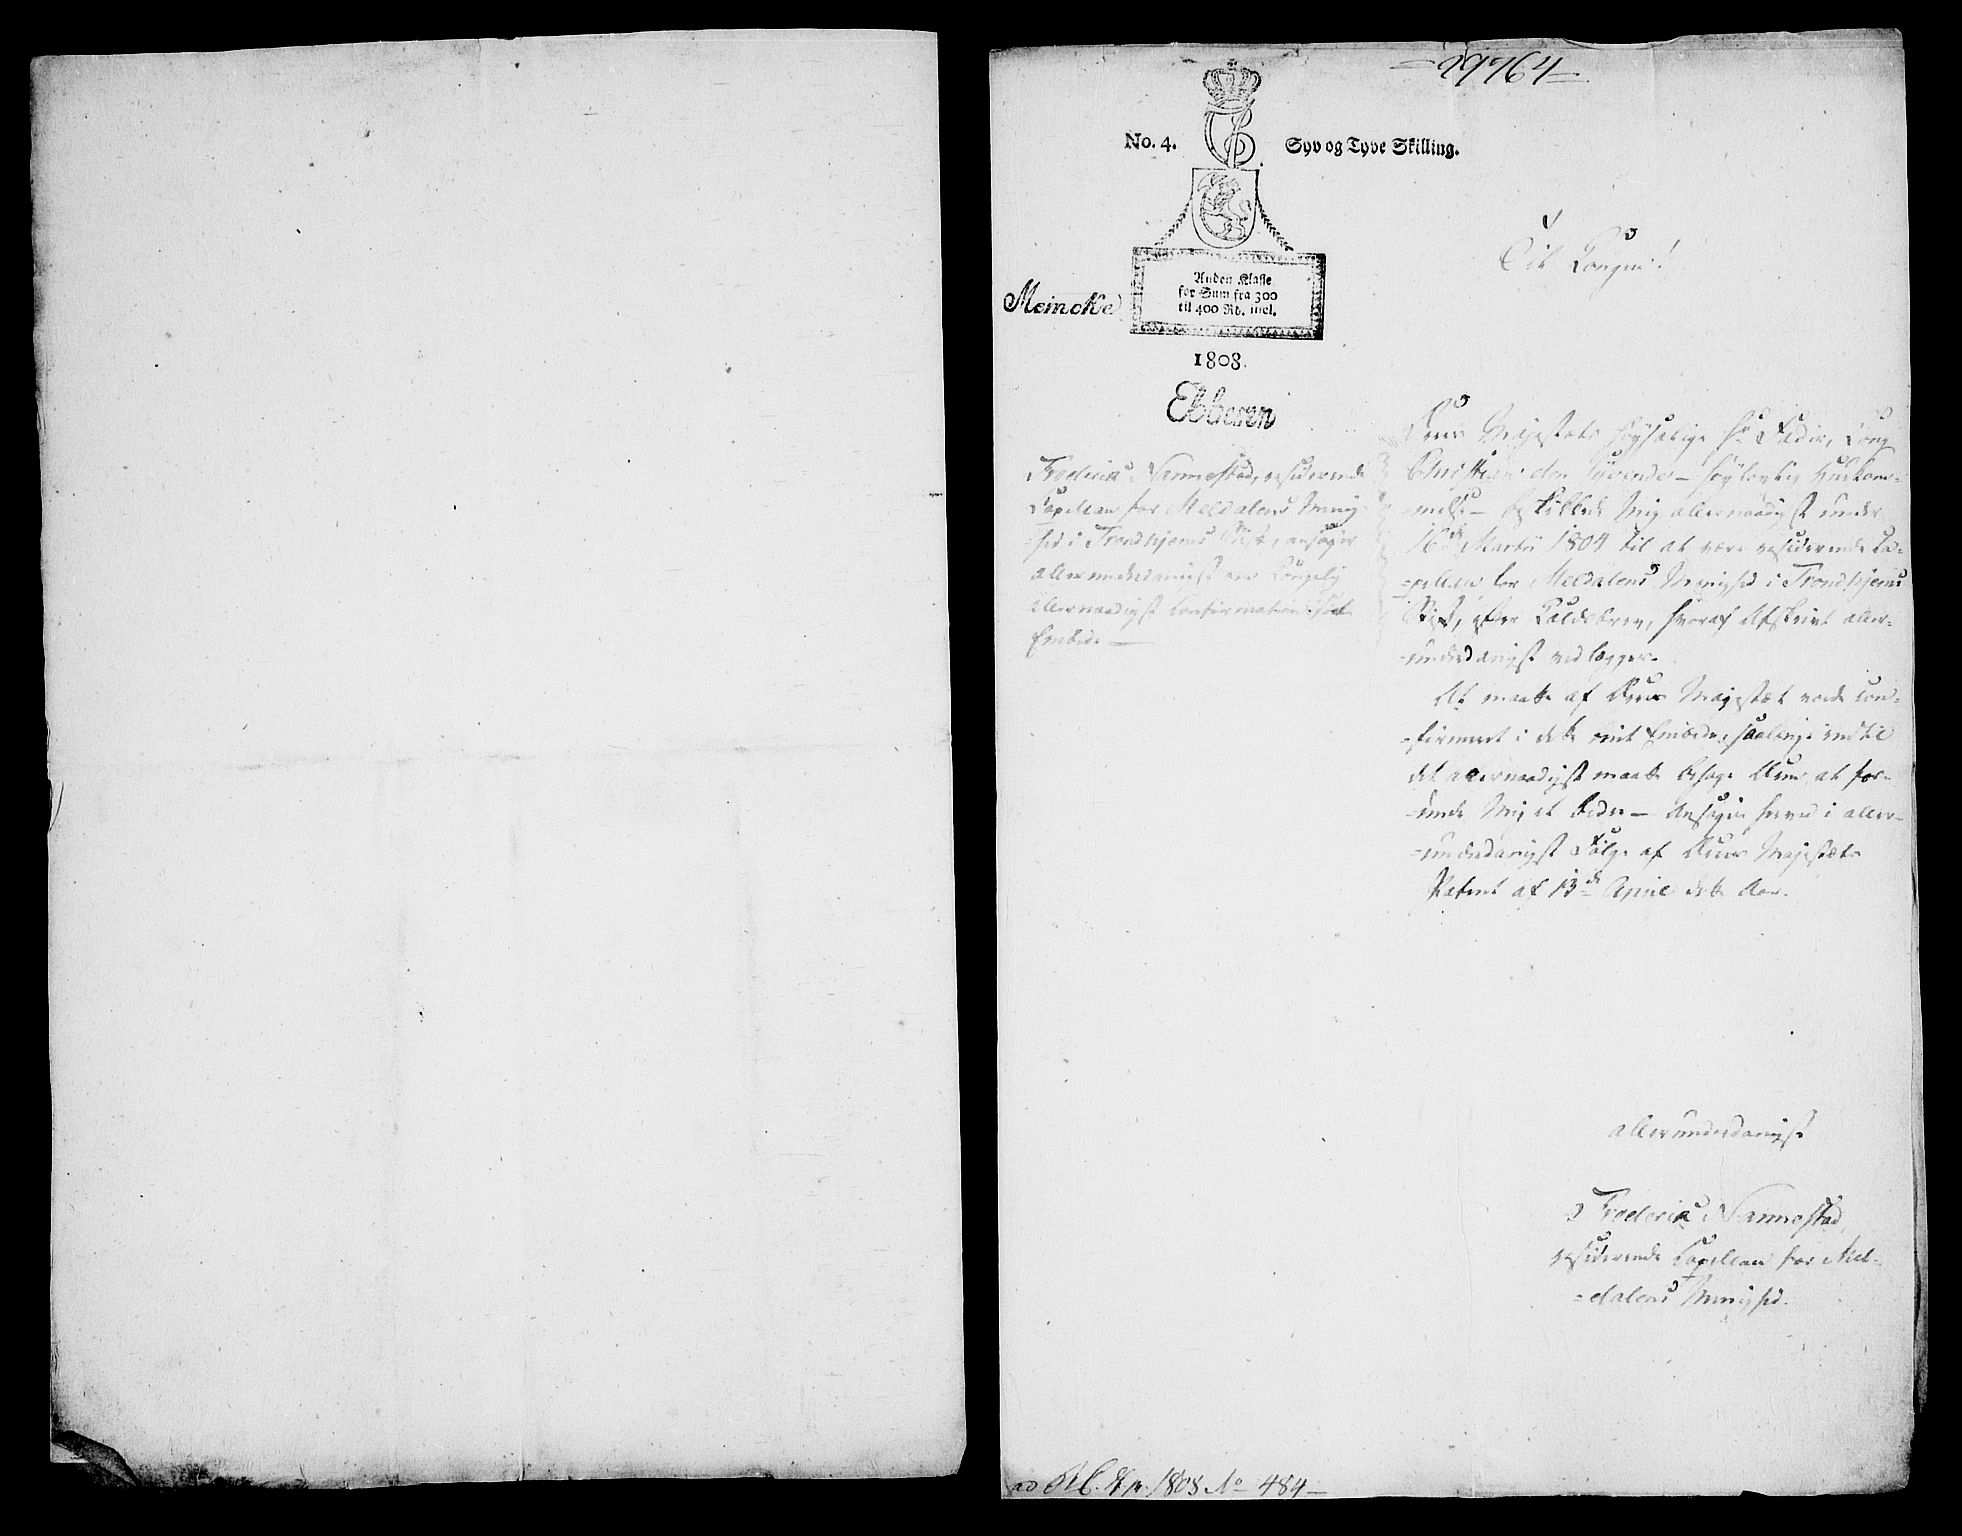 29764
No. 4.
Syv og Tyve Skilling.
Til Kongen!
Anden Klasse
for Sum fra 300
til 400 Rd. incl.
Meincke
1808.
Ebbesen
Frederik Nannestad, residerende
Capellan for Meldalens Menig-
-hed i Trondhjems Stift, ansøger
allerunderdanigst om Kongelig
allernaadigst Confirmation paa
Embede —
Deres Majestæts høysalige Hr Fader, Kong
Christian den Syvende — høylovlig Hukom-
-melse — beskikkede mig allernaadigst under
16de Martii 1804 til at være residerende Ca-
-pellan for Meldalens Menighed i Trondhjems
Stift, efter Kaldsbrev, hvoraf Afskrivt aller-
-underdanigst vedlægges.
At maatte af Deres Majestæt vorde con-
-firmeret i dette mit Embede, saalenge indtil
det allernaadigst maatte behage Dem at for-
-unde mig et bedre — Ansøger herved i aller-
-underdanigst Følge af Deres Majestæts
Patent af 13de April dette Aar.
allerunderdanigst
Frederik Nannestad,
residerende Capellan for Mel-
-dalens Menighed.
ad 1808 No 484 —